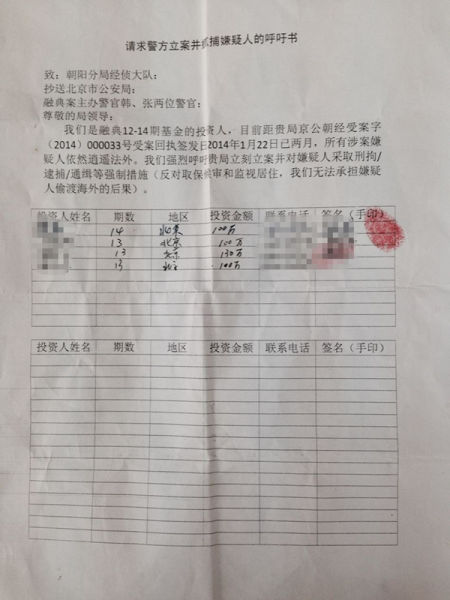 请求警方立案并抓捕嫌疑人的呼吁书
致：朝阳分局经侦大队：
抄送北京市公安局：
融典案主办警官韩、张两位警官：
尊敬的局领导：
我们是融典12-14期基金的投资人，目前距贵局京公朝经受案字
（2014）000033号受案回执签发日2014年1月22日已两月，所有涉案嫌
疑人依然逍遥法外。我们强烈呼吁贵局立刻立案并对嫌疑人采取刑拘/
逮捕/通缉等强制措施（反对取保候审和监视居住，我们无法承担嫌疑
人偷渡海外的后果）。
投资人姓名 期数 地区 投资金额 联系电话 签名（手印）
14 北京 100万
13 北京 100万
13 北京 130万
13 北京 100万
投资人姓名 期数 地区 投资金额 联系电话 签名（手印）